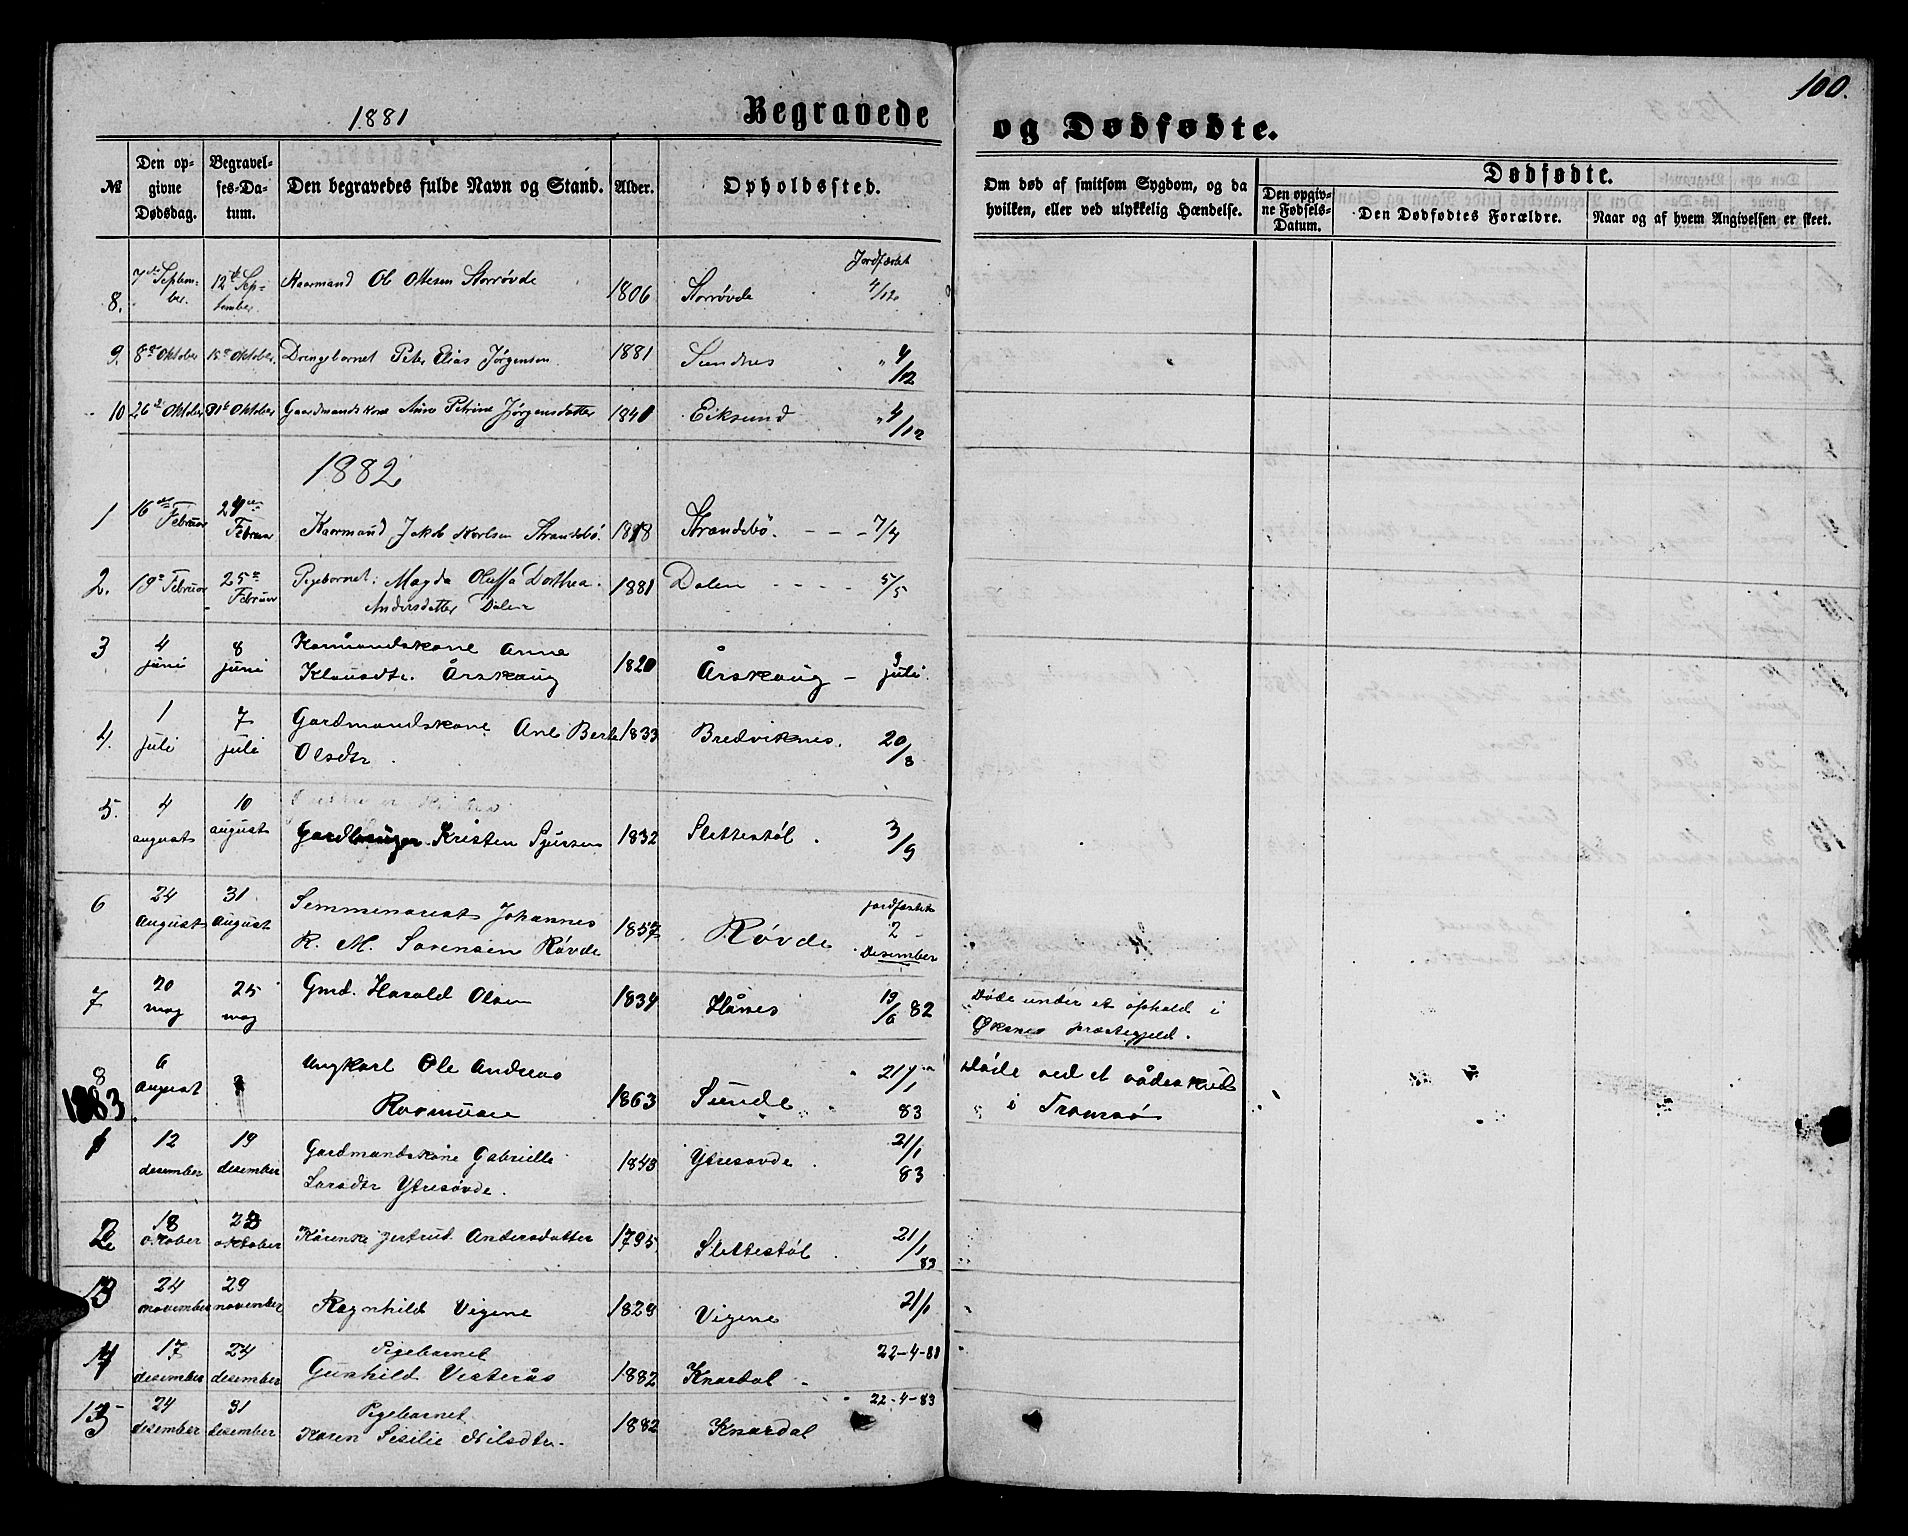 1881
Begravede
og Dødfødte.
100.
№
Den opgivne Dødsdag.
Begravelses-Datum.
Den begravedes fulde Navn og Stand.
Alder.
Opholdssted.
Om død af smitsom Sygdom, og da hvilken, eller ved ulykkelig Hændelse.
Dødfødte.
Den opgivne Fødsels-Datum.
Den Dødfødtes Forældre.
Naar og af hvem Angivelsen er skeet.
8. 7de September 12te September Kaarmand Ole Ottesen Storrøvde 1806 Storrøvde Jordfæstet 4/12
9. 8de Oktober 15de Oktober Drengebarnet Peter Elias Jørgensen 1881 Sundnes " 4/12
10 26de Oktober 31te Oktober Gaardmandskone Ane Petrine Jørgensdatter 1841 Eiksund " 4/12
1882
1 16de Februar 24de Februar Kaarmand Jakob Karlsen Strandebø. 1818 Strandebø. - - - 7/4
2. 18de Februar 25de Februar Pigebarnet: Magda Oluffa Dorthea
Andersdatter Dalen 1881 Dalen - - - 5/5
3 4 juni 8 juni Kaarmandskone Anna
Klausdtr. Årskaug 1820 Årskaug - 9 juli.
4. 1 juli 7 juli Gardmandskone Ane Berte
Olsdtr. 1833 Bredviknes. 20/8
5. 4 august 10 august Gardbruger Kristen Sjursen 1832 Slettestøl. 3/9
6 24 August 31 August Semmenarist Johannes
R. M. Sørensen Røvde 1857 Røvde jordfæstet 2 Desember
7 20 maj 25 maj Gmd. Harald Olsen 1834 Hånes 19/6 82 Døde under et ophold i
Øksnes præstegjeld.
8 6 august Ungkarl Ole Andreas
Rasmusen 1863 Sunde 21/1 83 Døde ved et vådeskud
i Tromsø
1883
1 12 desember 19 desember Gardmandskone Gabrielle
Larsdtr Ytresøvde. 1843 Ytresøvde. 21/1 83
2 18 oktober 23 oktober Kårenke Jertrud Andersdatter 1795 Slettestøl. 21/1 83
3 24 november 29 november Ragnhild Vigene 1829 Vigene 21/1
4 17 desember 24 desember Pigebarnet
Gunhild Vesterås 1882 Knardal - 22-4-83
5 24 desember 31 desember Pigebarnet
Karen Sesilie Nilsdtr. 1882 Knardal 22-4-83